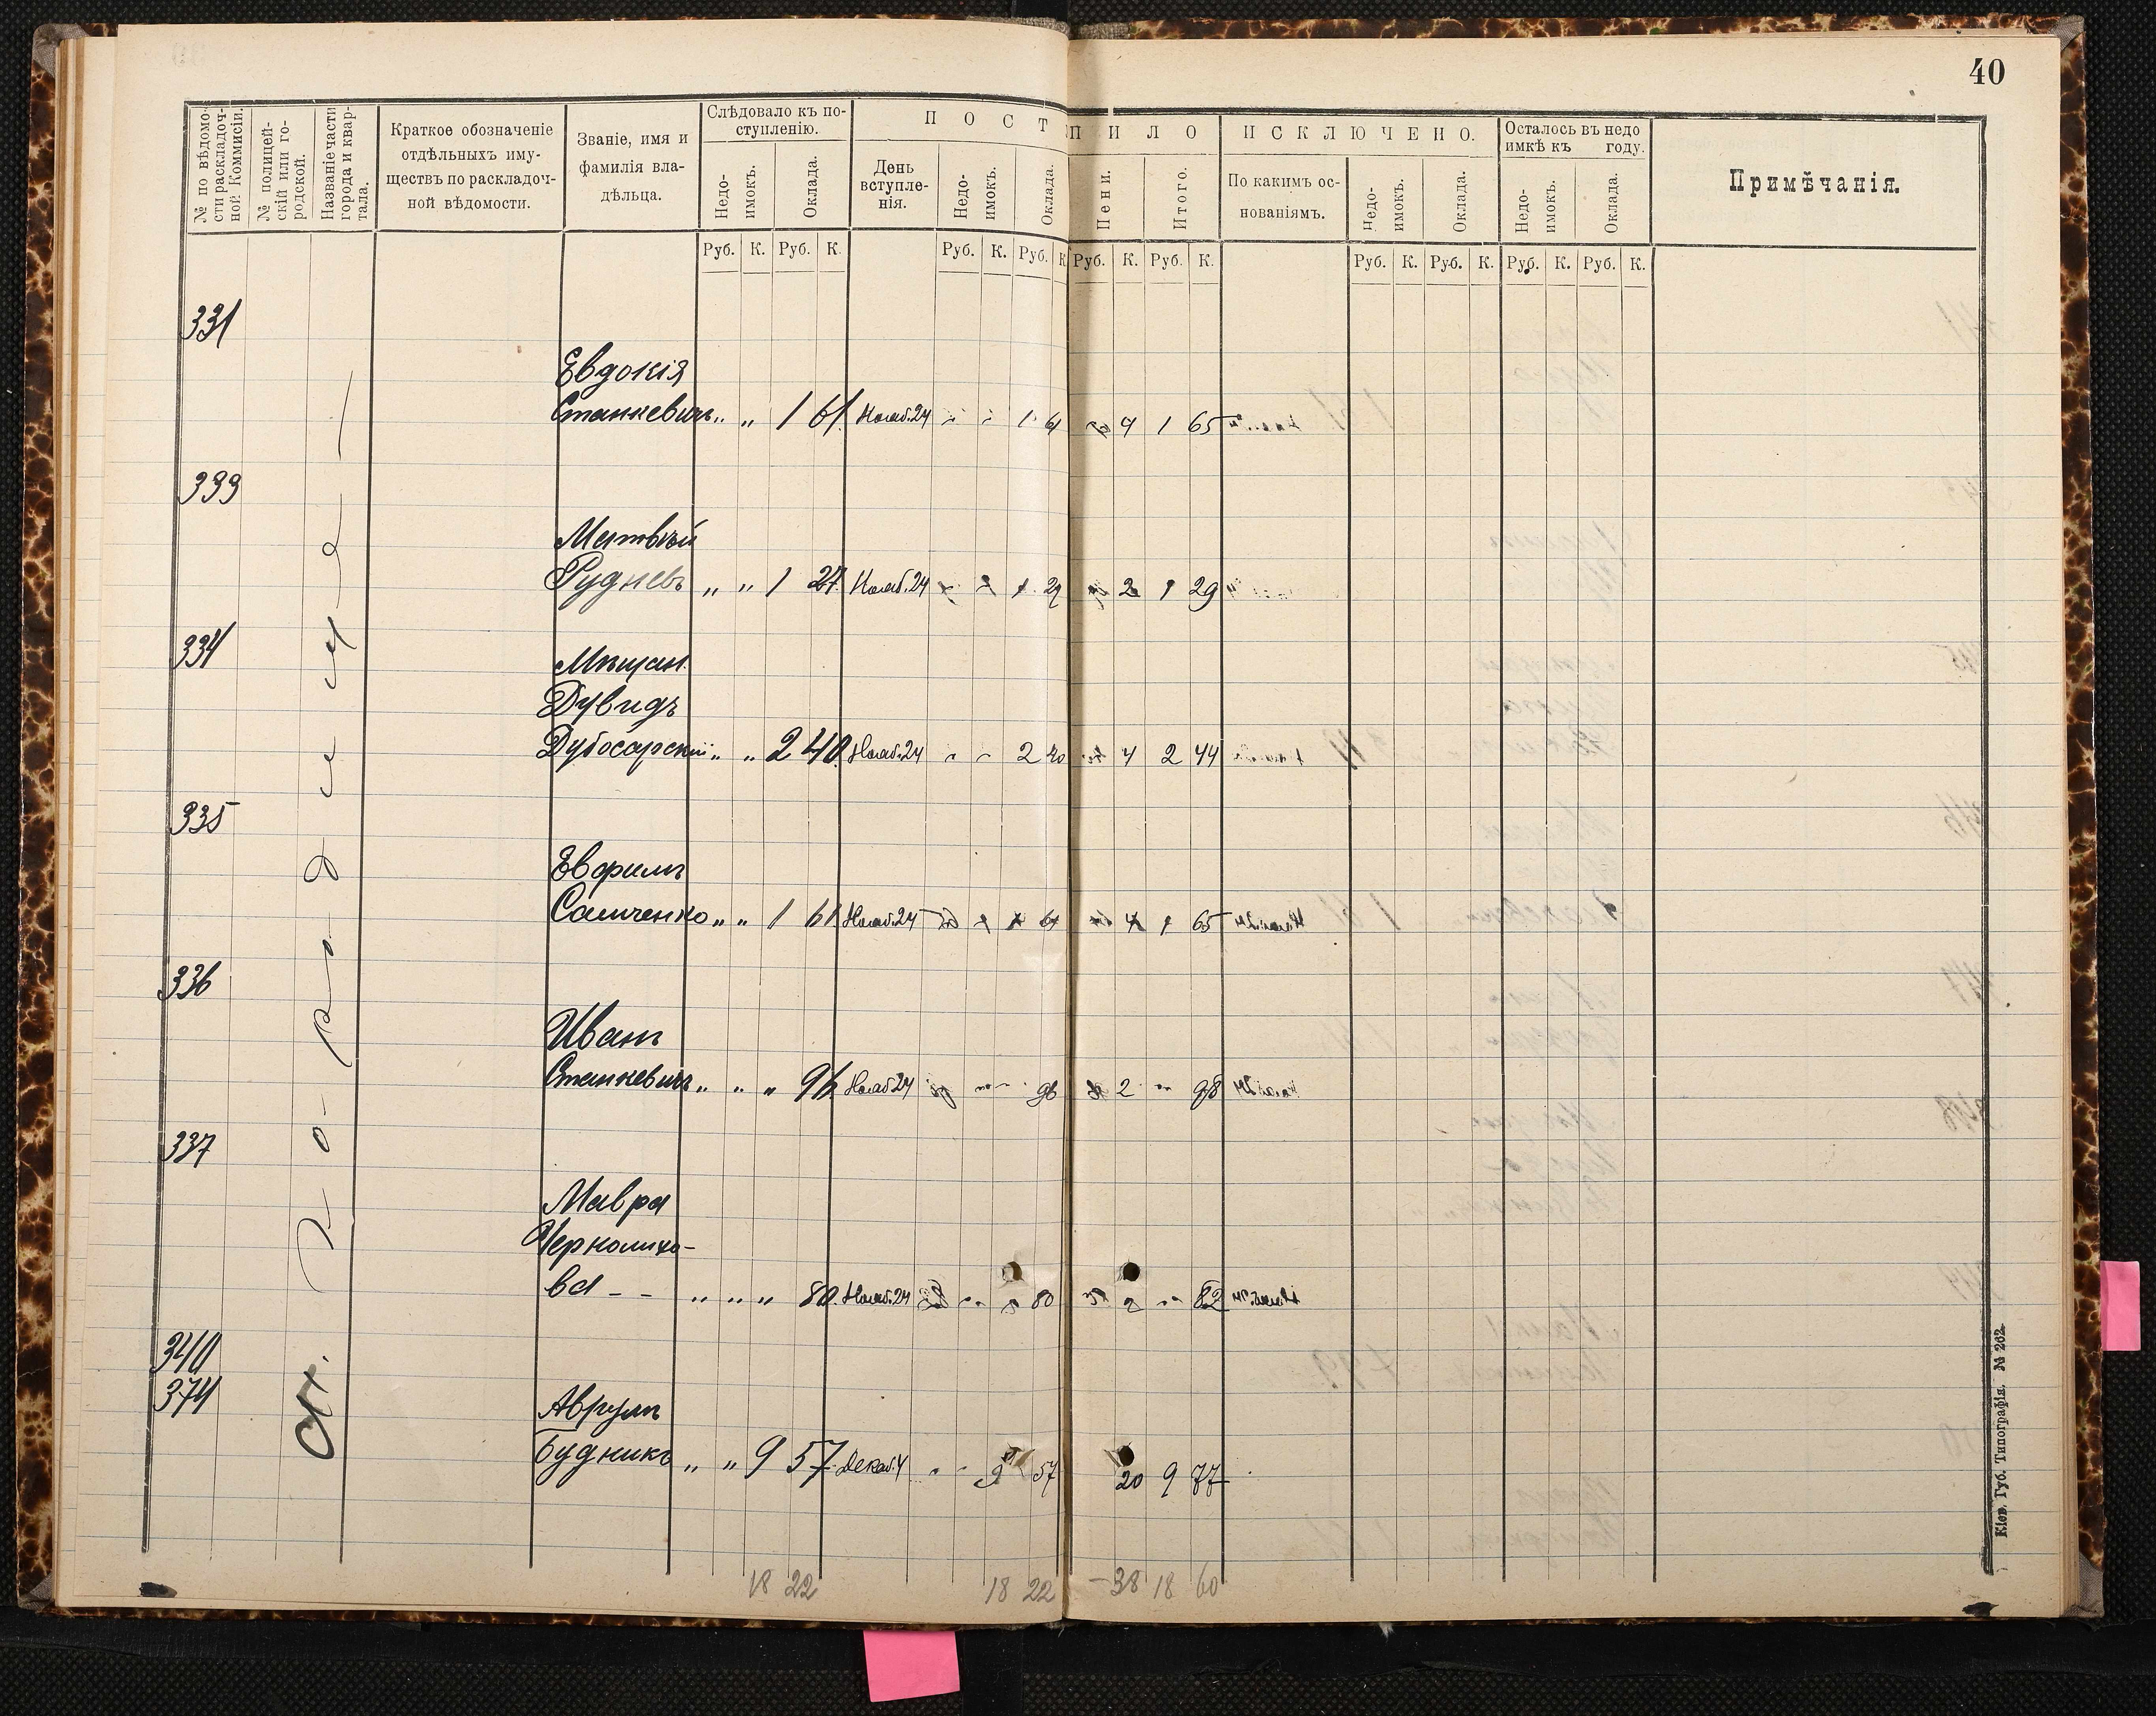 40
№ по вѣдомости раскладочной Коммисіи.
№ полицейскій или городской.
Названіе части города и квартала.
Краткое обозначеніе
отдѣльныхъ иму-
ществъ по раскладоч-
ной вѣдомости.
Званіе, имя и
фамилія вла-
дѣльца.
Слѣдовало къ по-
ступленію.
Недо-
имокъ.
Оклада.
ПОСТУПИЛО
День
вступле-
нія.
Недо-
имокъ.
Оклада.
Пени.
Итого.
ИСКЛЮЧЕНО.
По какимъ ос-
нованіямъ.
Недо-
имокъ.
Оклада.
Осталось въ недо
имкѣ къ году.
Недо-
имокъ.
Оклада.
Примѣчанія.
Руб. К. Руб. К. Руб. К. Руб. К. Руб. К. Руб. К. Руб. К. Руб. К. Руб. К. Руб. К.
331
Евдокія
Станкевичъ „ „ 1 61 Нояб. 24 1 61 4 1 65
333
Матвѣй
Рудневъ „ „ 1 27 Нояб. 24 1 27 2 1 29
334
Мѣщан.
Дувидъ
Дубосарскій „ „ 2 40 Нояб. 24 2 40 4 2 44
335
Евфимъ
Самченко „ „ 1 61 Нояб. 24 1 61 4 1 65
336
Иванъ
Станкевичъ „ „ „ 96 Нояб. 24 96 2 98
337
Мавра
ва - - „ „ „ 80 Нояб. 24 80 2 82
340
374
Аврумъ
Будникъ „ „ 9 57 Декаб. 4 9 57 20 9 77
18 22 18 22 - 38 18 60
Кіев. Губ. Типографія. № 262.